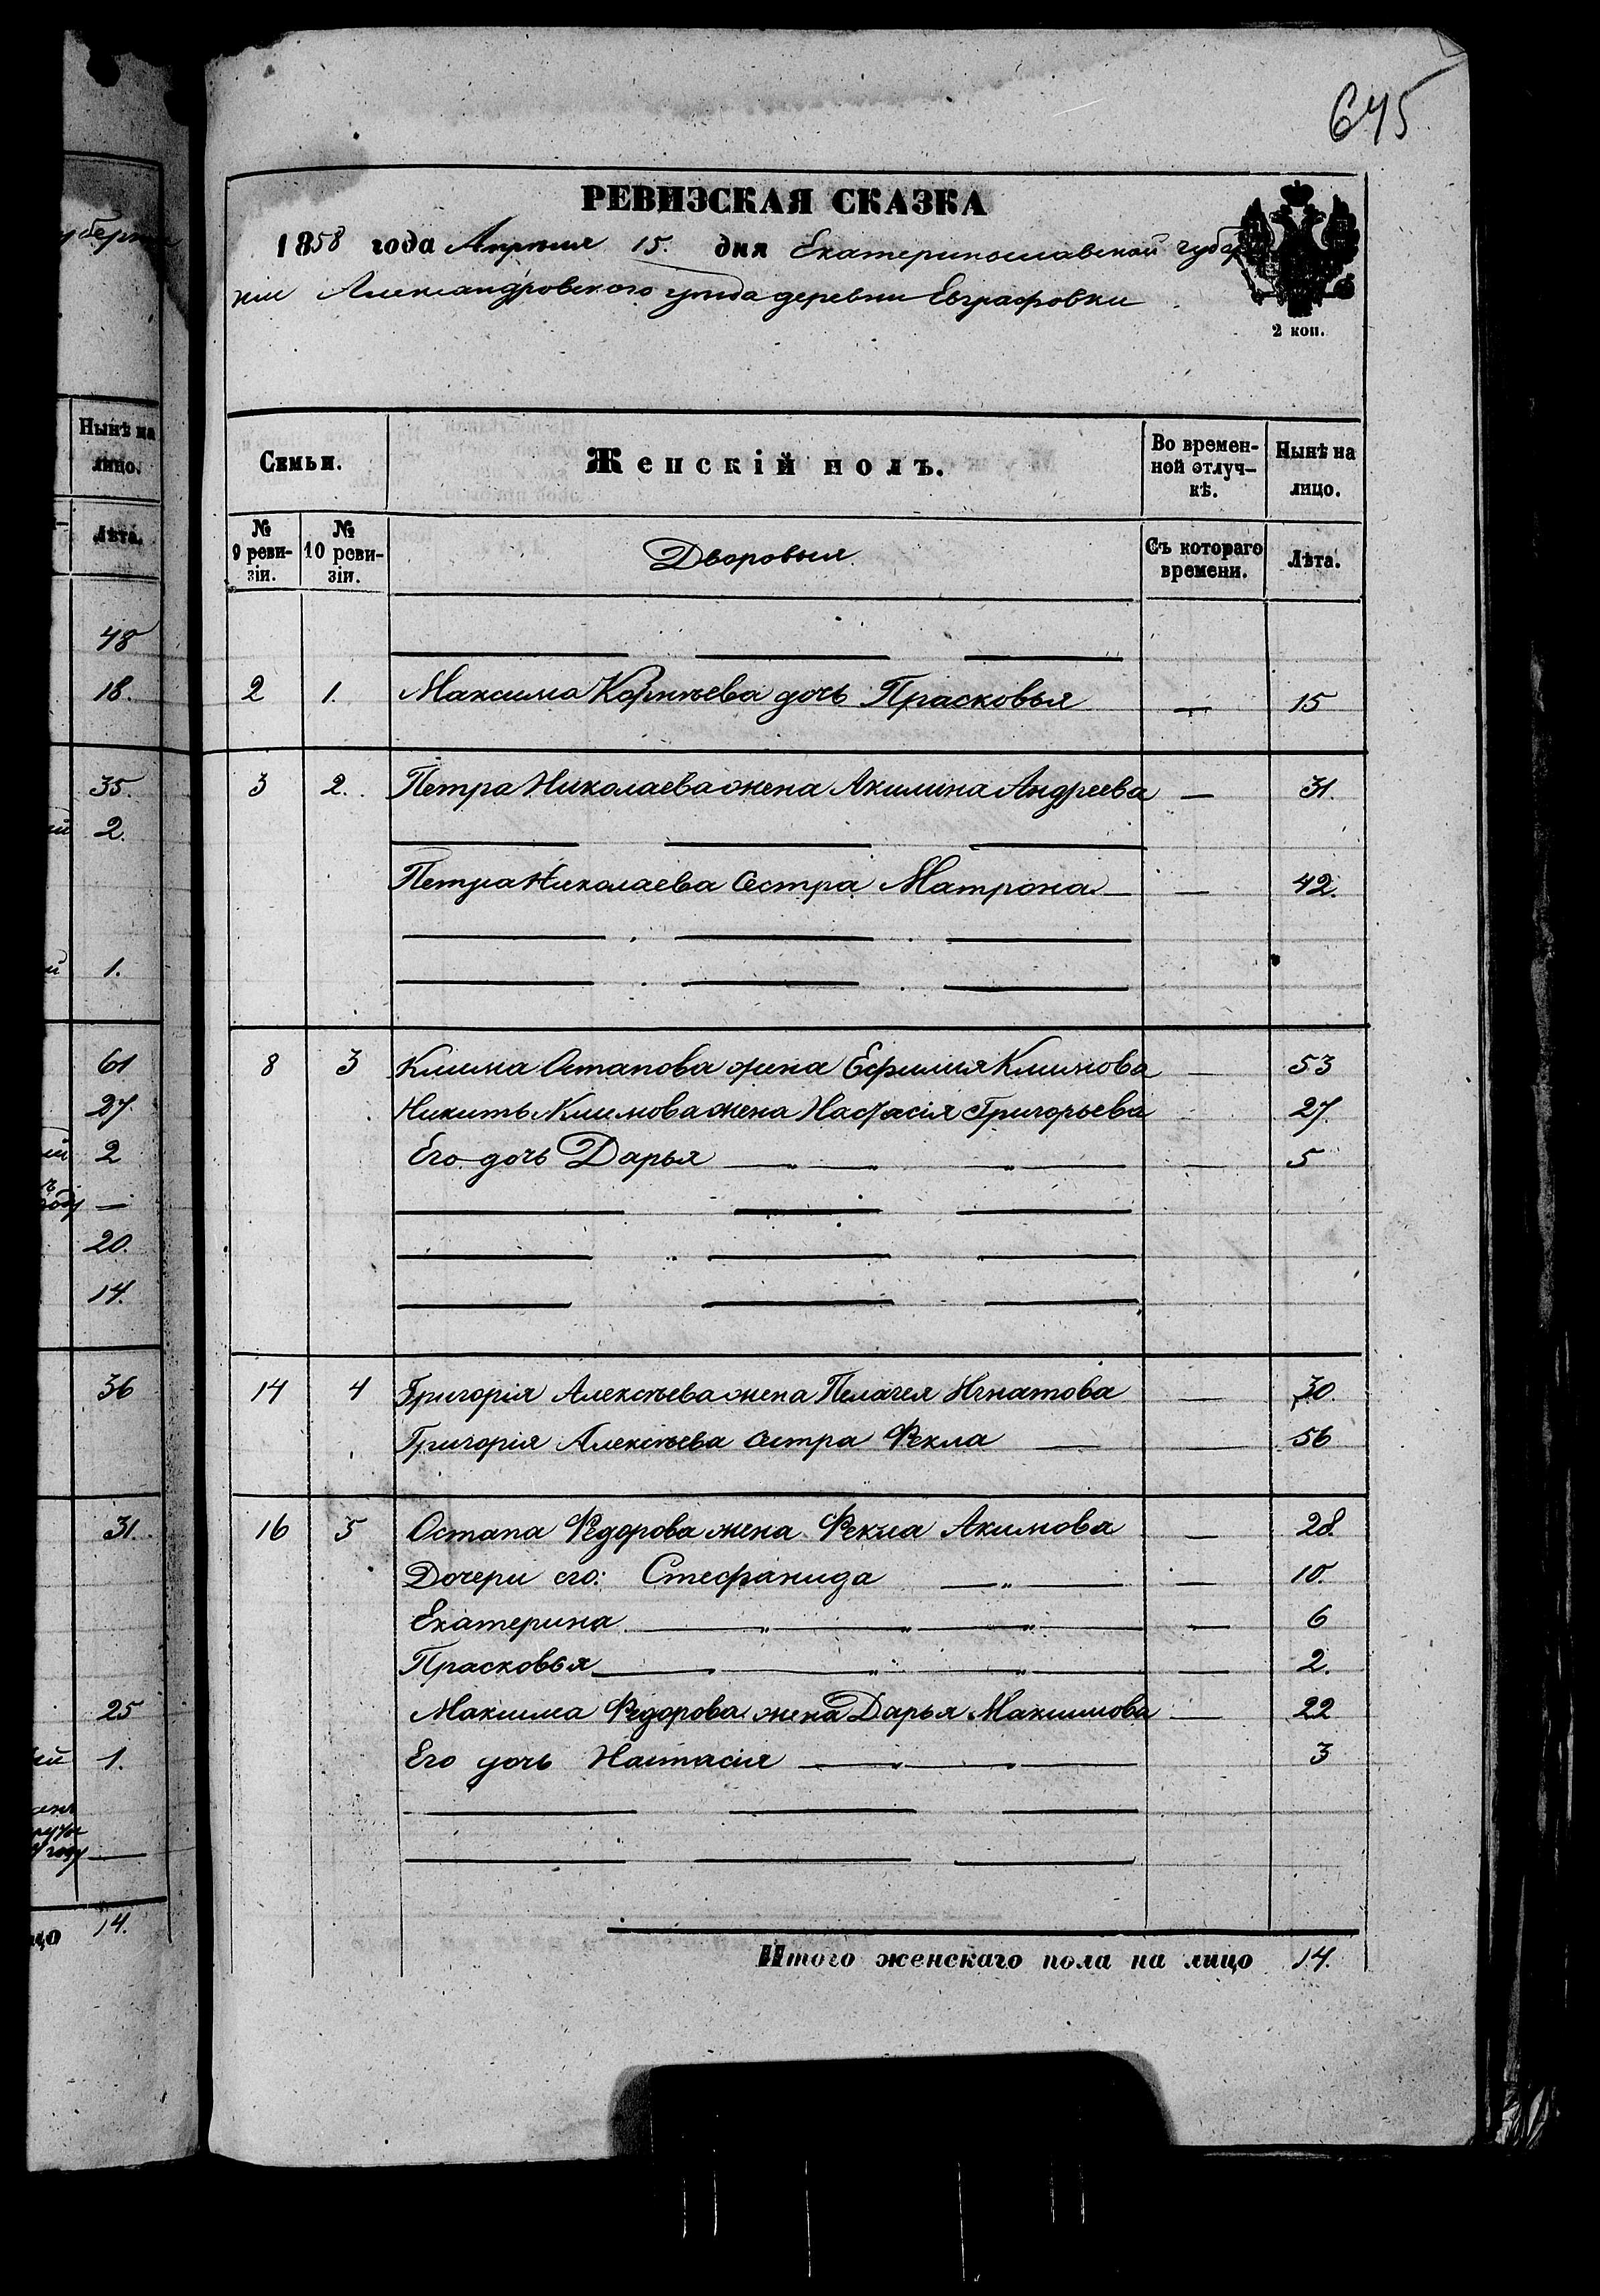 645
РЕВИЗСКАЯ СКАЗКА
1858 года Апреля 15. дня Екатеринославской губер
ніи Александровского уѣзда деревни Евграфовки
2 коп.
уберніи
Нынѣ на
лицо.
Лѣта.
48
18.
35.
2.
1.
61
27.
2
—
20.
14.
36
31.
25
1.
году
14.
Семьи.
Женскій полъ.
Во времен-
ной отлуч-
кѣ.
Нынѣ на
лицо.
№
9 реви-
зіи.
№
10 реви-
зіи.
Дворовыя
Съ котораго
времени.
Лѣта.
2 1. Максима Корнѣева дочь Прасковья — 15
3 2. Петра Николаева жена Акилина Андреева — 31.
Петра Николаева Сестра Матрона — — 42.
8 3 Клима Остапова жена Ефимия Климова — 53
Никиты Климова жена Настасія Григорьева — 27.
Его дочь Дарья — „ — „ — — 5
14 4 Григорія Алексѣева жена Пелагея Игнатова — 30.
Григорія Алексѣева сестра Фекла — — 56
16 5 Остапа Федорова жена Фекла Акимова — 28.
Дочери его: Стефанида — „ — — 10.
Екатерина — „ — „ — „ — — 6
Прасковья — „ — „ — „ — — 2.
Максима Федорова жена Дарья Максимова — 22
Его дочь Настасія — „ — „ — 3
Итого женскаго пола на лицо 14.